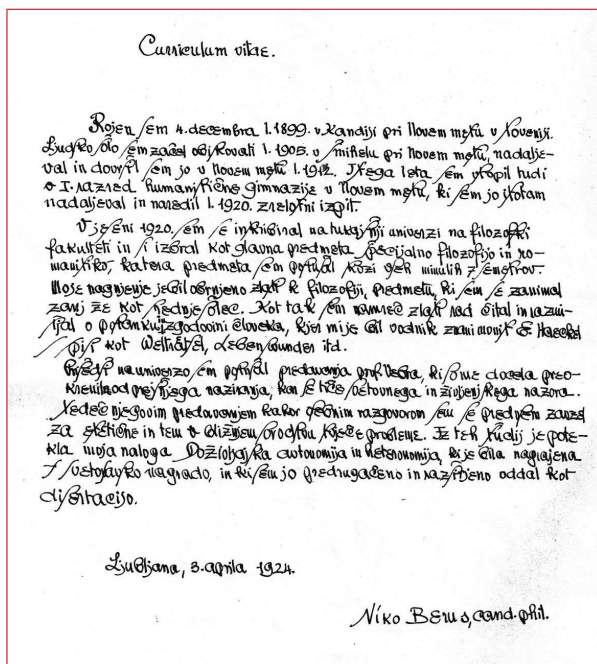 Curriculum vitae.
Rojen sem 4. decembra l. 1899. v Kandiji pri Novem mestu v Sloveniji.
Ljudsko šolo sem začel obiskovati l. 1905. v Šmihelu pri Novem mestu, nadalje-
val in dovršil sem jo v Novem mestu l. 1912. Istega leta sem vstopil tudi
v I. razred humanistične gimnazije v Novem mestu, ki sem jo istotam
nadaljeval in naredil l. 1920. zrelostni izpit.
V jeseni 1920. sem se inskribiral na tukajšnji univerzi na filozofski
fakulteti in si izbral kot glavna predmeta specijalno filozofijo in ro-
manistiko, katera predmeta sem poslušal skozi sedem minulih semestrov.
Moje nagnjenje je bilo obrnjeno zlasti k filozofiji, predmetu, ki sem se zanimal
zanj že kot srednješolec. Kot tak sem namreč zlasti rad čital in razmi-
šljal o postanku in zgodovini človeka, kjer mi je bil vodnik znani monist E. Haeckel
s spisi kot Welträtsel, Lebenswunder itd.
Prišedši na univerzo sem poslušal predavanja prof. Vebra, ki so me docela preo-
krenila od prejšnjega naziranja, kar se tiče svetovnega in življenjskega nazora.
Sledeč njegovim predavanjem kakor osebnim razgovorom sem se predvsem zavzel
za estetične in tem v bližnjem sorodstvu stoječe probleme. Iz teh študij je pote-
kla moja naloga Doživljajska avtonomija in heteronomija, ki je bila nagrajena
s svetosavsko nagrado, in ki sem jo predrugačeno in razširjeno oddal kot
disertacijo.
Ljubljana, 3. aprila 1924.
Niko Berus, cand. phil.